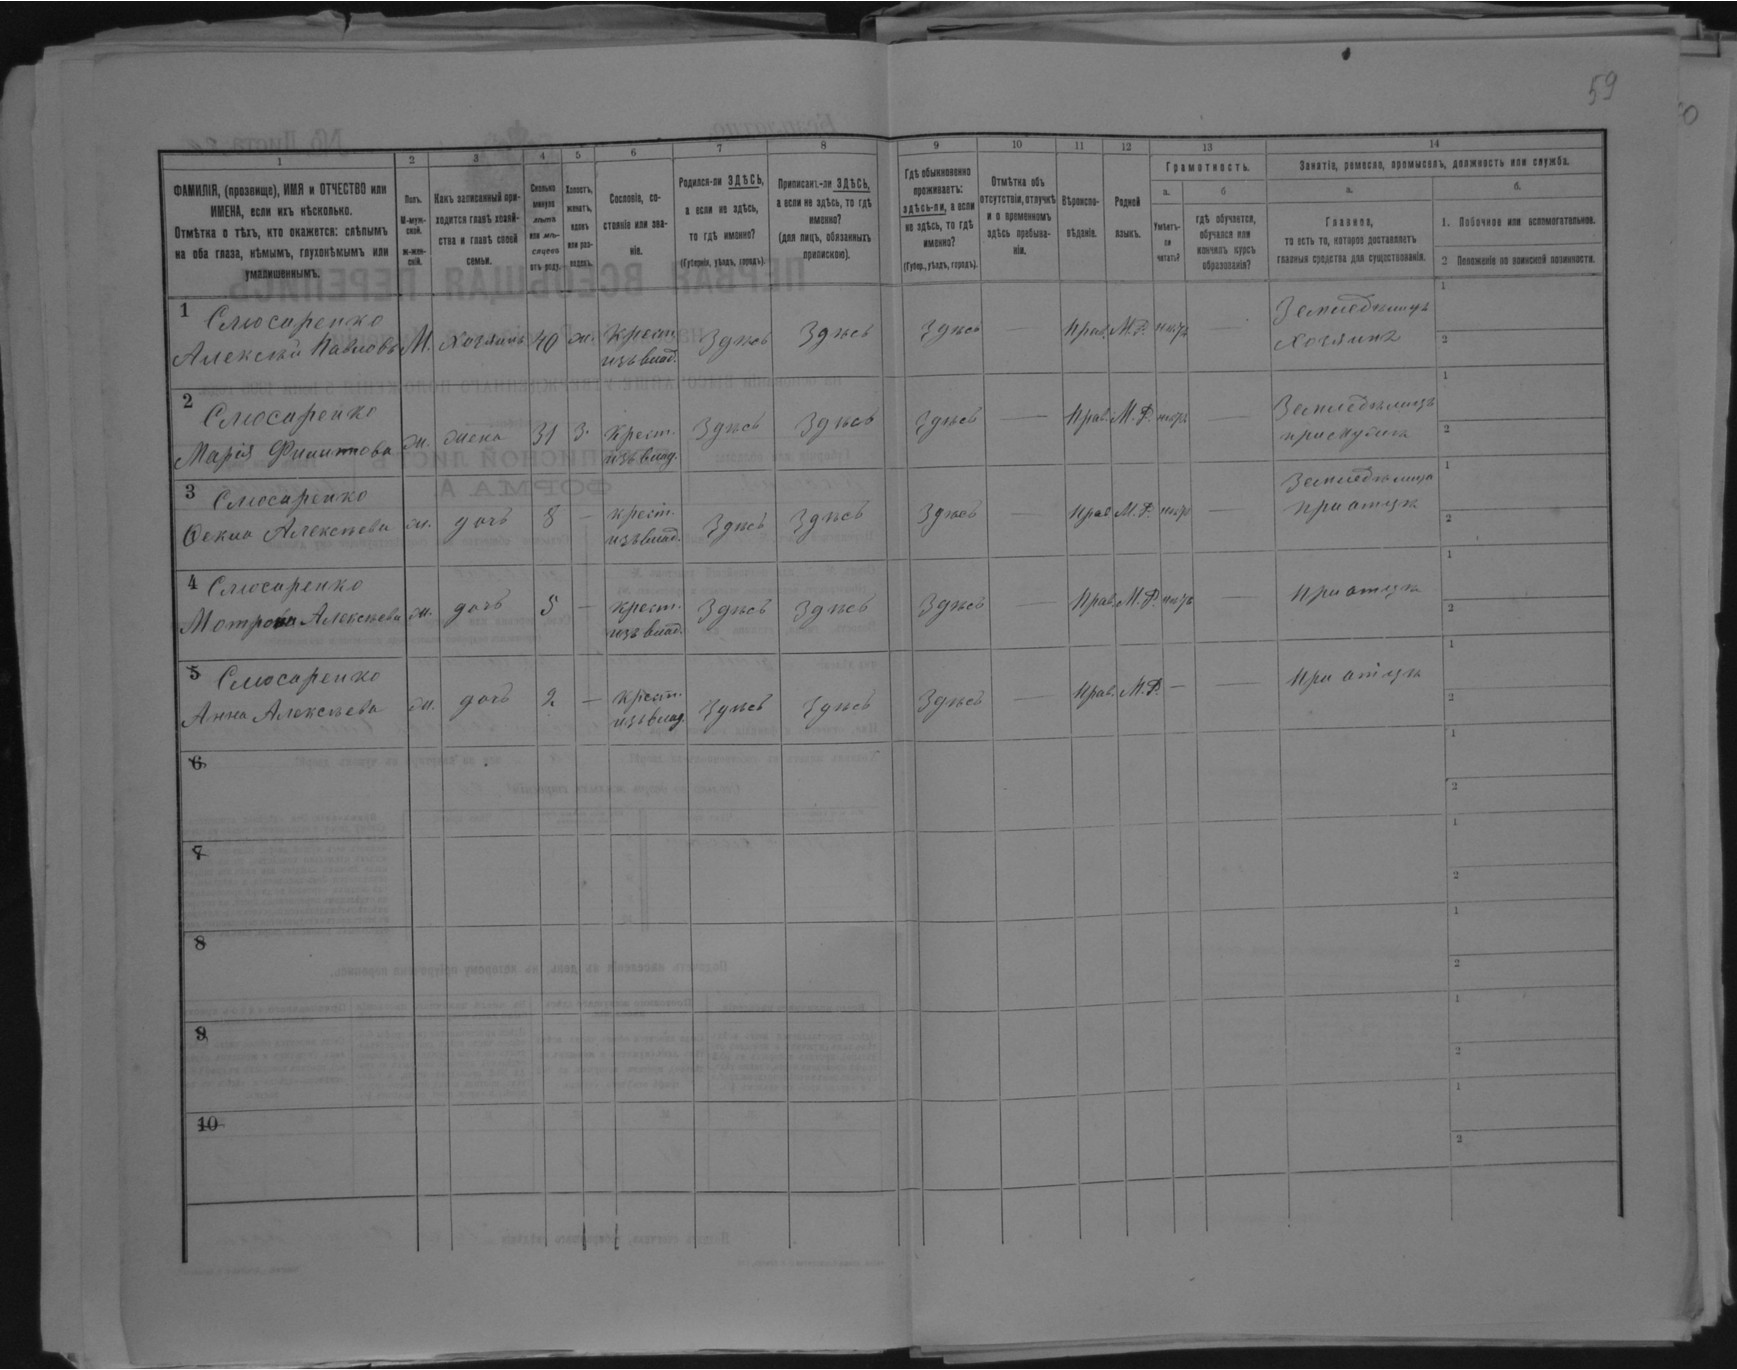 59
1 2 3 4 5 6 7 8 9 10 11 12 13 14
ФАМИЛІЯ, (прозвище), ИМЯ и ОТЧЕСТВО или
ИМЕНА, если ихъ нѣсколько.
Отмѣтка о тѣхъ, кто окажется: слѣпымъ
на оба глаза, нѣмымъ, глухонѣмымъ или
умалишеннымъ.
Полъ.
М-муж-
ской.
ж-жен-
скій.
Какъ записанный при-
ходится главѣ хозяй-
ства и главѣ своей
семьи.
Сколько
минуло
лѣтъ
или мѣ-
сяцевъ
отъ роду.
Холостъ,
женатъ,
вдовъ
или раз-
веденъ.
Сословіе, со-
стояніе или зва-
ніе.
Родился-ли ЗДѢСЬ,
а если не здѣсь,
то гдѣ именно?
(Губернія, уѣздъ, городъ).
Приписанъ-ли ЗДѢСЬ,
а если не здѣсь, то гдѣ
именно?
(для лицъ, обязанныхъ
припискою).
Гдѣ обыкновенно
проживаетъ:
здѣсь-ли, а если
не здѣсь, то гдѣ
именно?
(Губер., уѣздъ, городъ).
Отмѣтка объ
отсутствіи, отлучкѣ
и о временномъ
здѣсь пребыва-
ніи.
Вѣроиспо-
вѣданіе.
Родной
языкъ.
Грамотность.
а. б
Умѣетъ-
ли
читать?
гдѣ обучается,
обучался или
кончилъ курсъ
образованія?
Занятіе, ремесло, промыселъ, должность или служба.
а. б.
Главное,
то есть то, которое доставляетъ
главныя средства для существованія.
1. Побочное или вспомогательное.
2 Положеніе по воинской повинности.
1 Слюсаренко
Алексѣй Павловъ М. Хозяинъ 40 ж. Крест.
изъ влад. Здѣсь Здѣсь Здѣсь — Прав. М.Р. нѣтъ — Земледѣлецъ
Хозяинъ
1
2
2 Слюсаренко
Марія Филиппова ж. жена 31 з. Крест.
изъ влад. Здѣсь Здѣсь Здѣсь — Прав. М.Р. нѣтъ —
1
2
3 Слюсаренко
Алексѣева ж. дочь 8 — крест.
изъ влад. Здѣсь Здѣсь Здѣсь — Прав. М.Р. нѣтъ —
при отцѣ
1
2
4 Слюсаренко
Алексѣева ж. дочь 5 — крест.
изъ влад. Здѣсь Здѣсь Здѣсь — Прав. М.Р. нѣтъ — при отцѣ
1
2
5 Слюсаренко
Анна Алексѣева ж. дочь 2 — крест.
изъ влад. Здѣсь Здѣсь Здѣсь — Прав. М.Р. — — при отцѣ
1
2
6
1
2
7
1
2
8
1
2
9
1
2
10
1
2